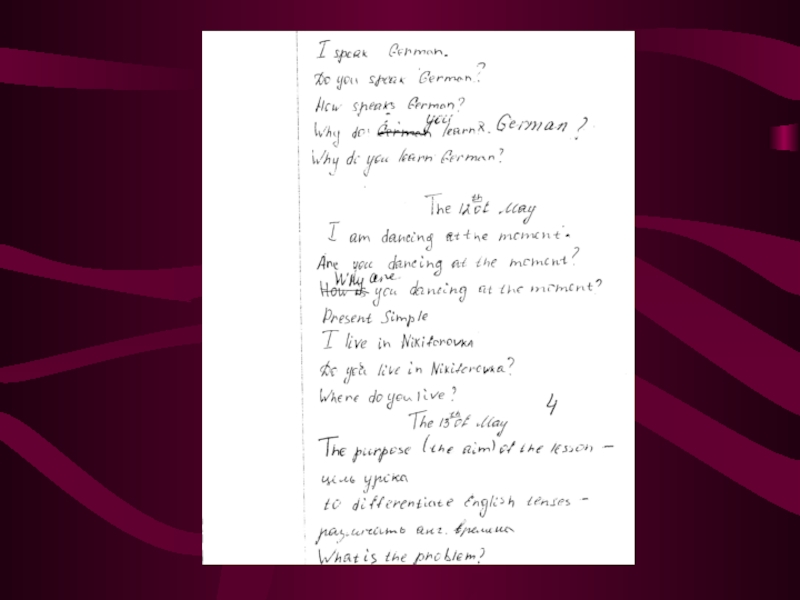 I speak German.
Do you speak German?
How speaks German?
Why do you learn. German?
Why do you learn German?
The 12th of May
I am dancing at the moment.
Are you dancing at the moment?
Why are you dancing at the moment?
Present Simple
I live in Nikiforovka
Do you live in Nikiforovka?
Where do you live?
4
The 13th of May
The purpose (the aim) of the lesson –
ціль урока
to differentiate English tenses –
различать анг. времена
What is the problem?